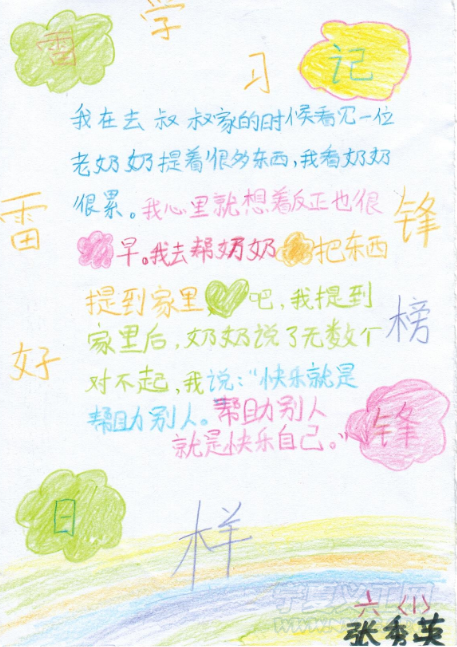 学
雷
习
记
我在去叔叔家的时候看见一位
老奶奶提着很多东西,我看奶奶
很累。我心里就想着反正也很
雷
锋
早。我去帮奶奶把东西
提到家里吧,我提到
家里后,奶奶说了无数个
榜
好
对不起,我说:“快乐就是
帮助别人。帮助别人
就是快乐自己。”
锋
日
样
六(1)
张秀英